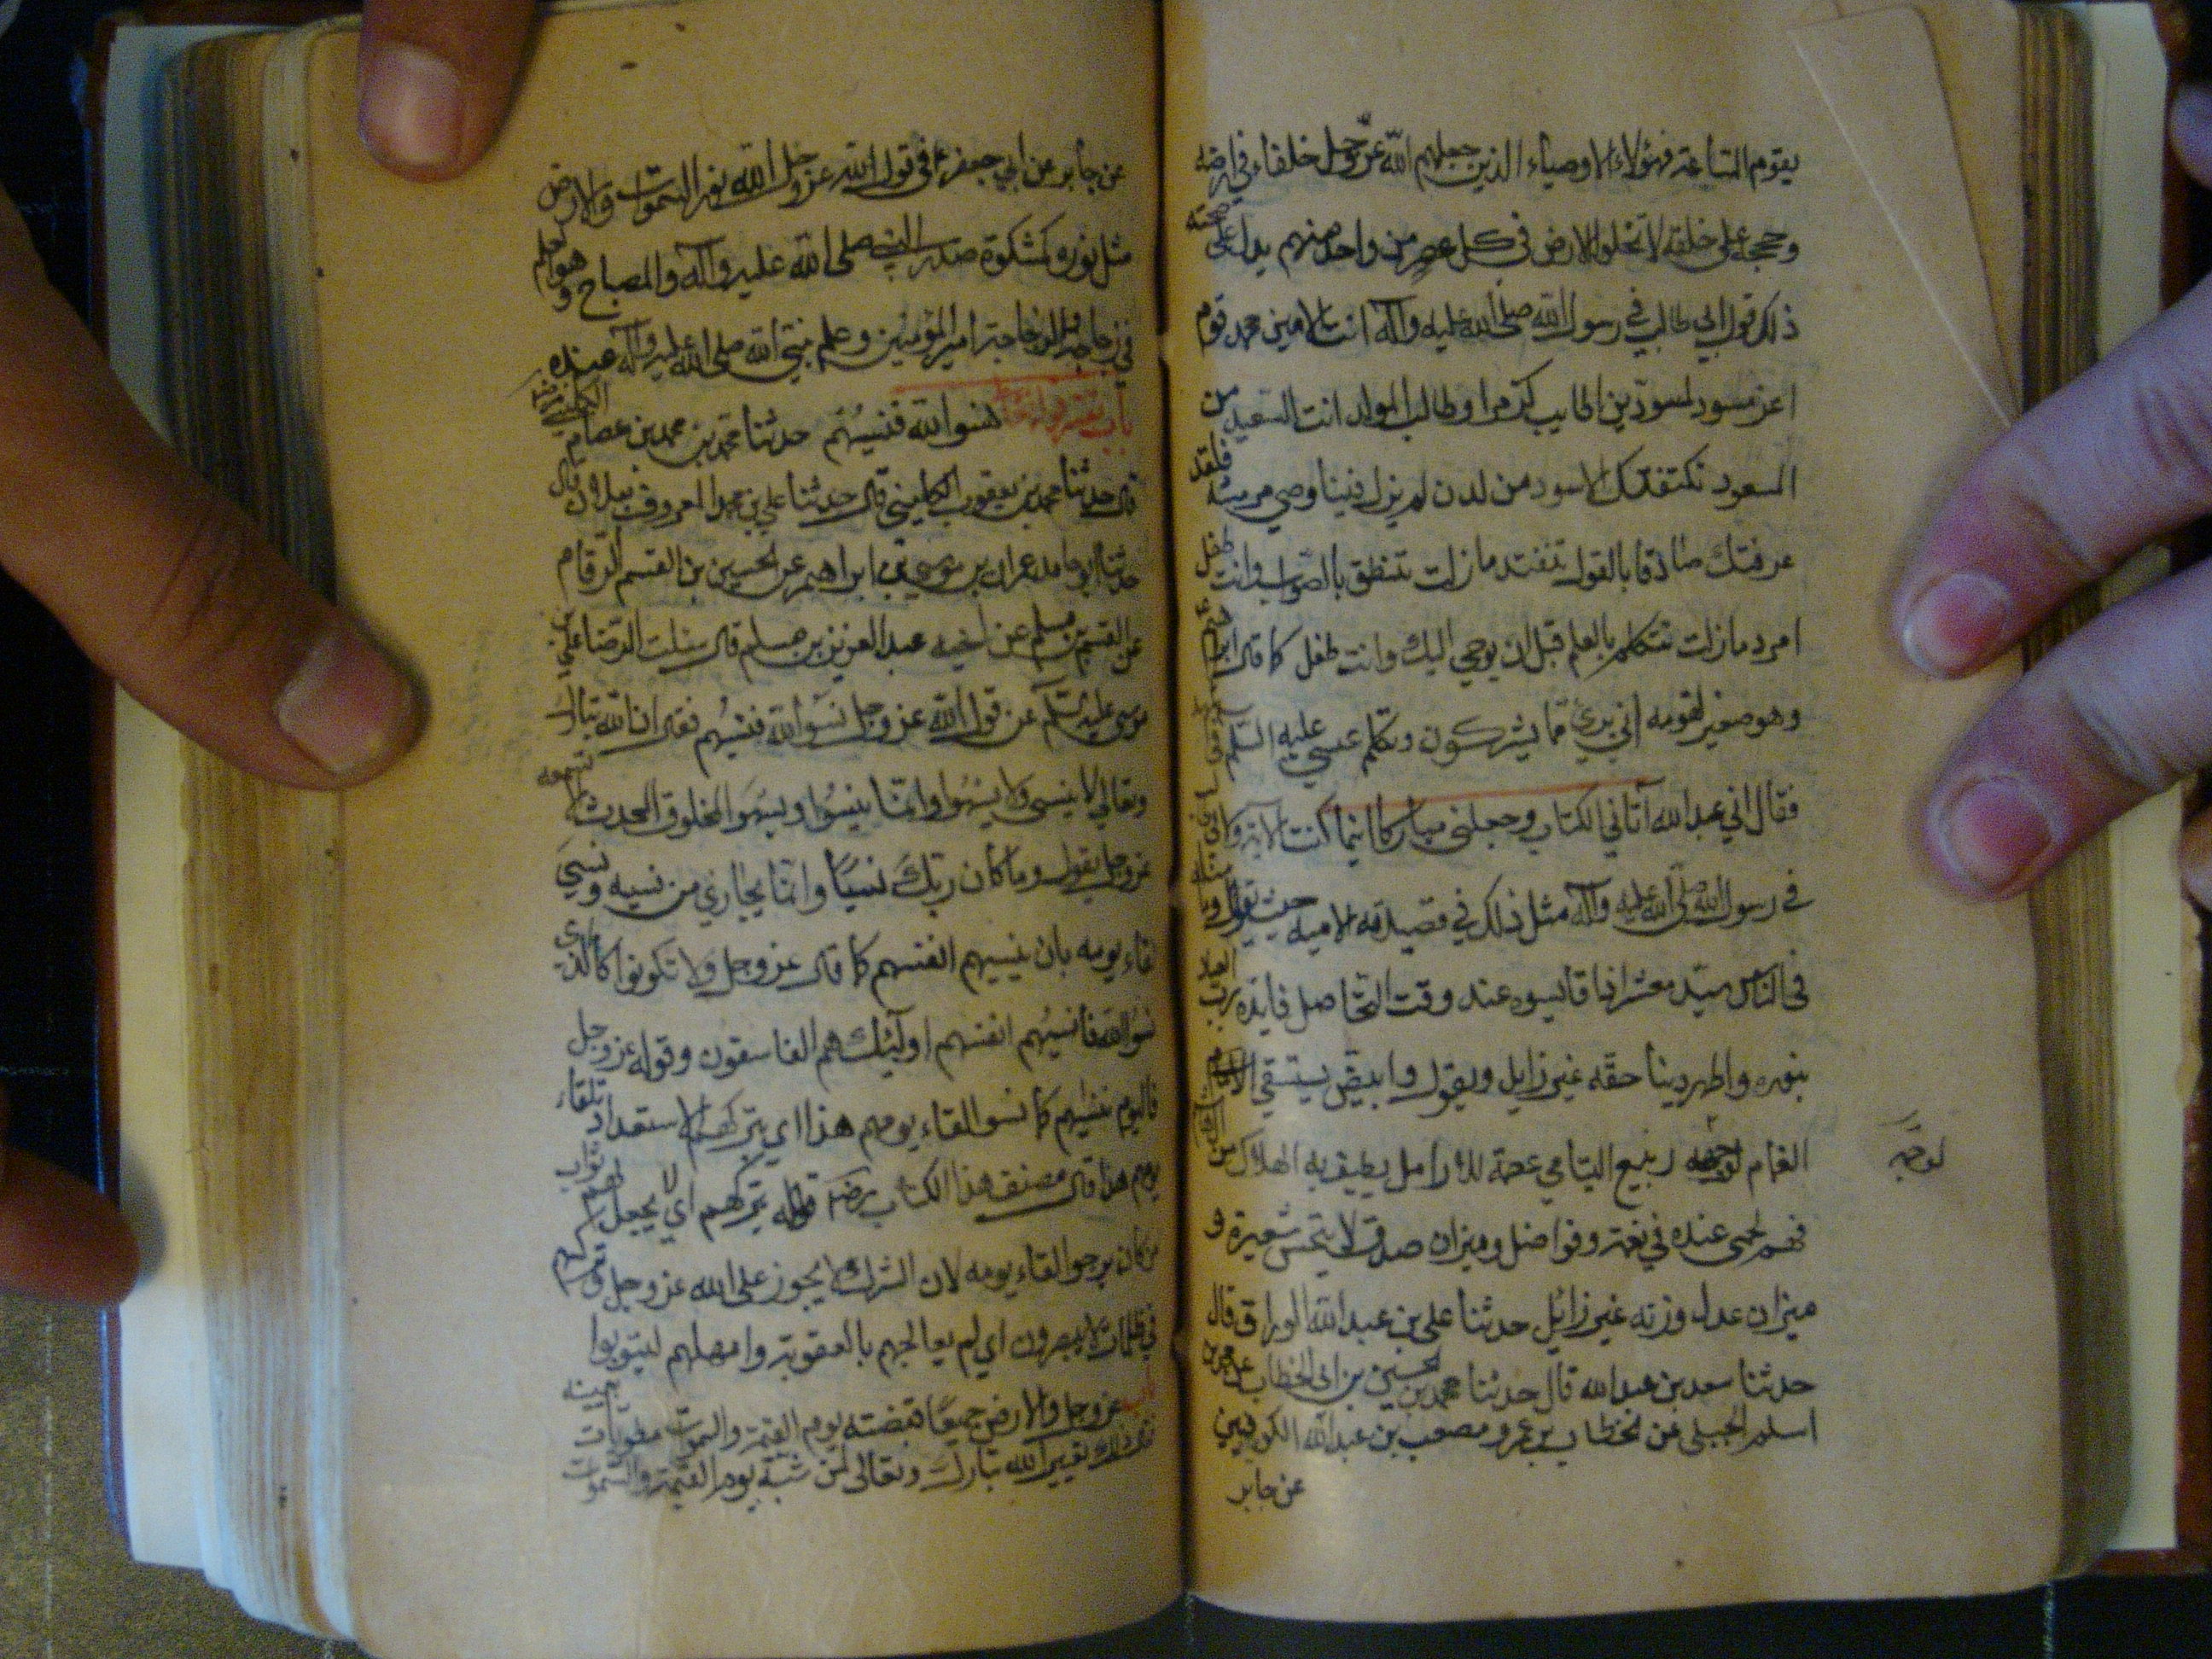 يقوم الساعة فهؤلاء الاوصياء الذين جعلهم الله عز وجل خلفاء في ارضه
وحججه على خلقه لا تخلو الارض في كل عصر من واحد منهم يدل على صحة
ذلك قول ابي طالب في رسول الله صلى الله عليه وآله انت الامين محمد قوم
اعز مسود لمسودين اطايب كرموا وطالب المولد انت السعيد من
السعود تكنفتك الاسود من لدن لم يزل فينا وصي مرشد فلقد
عرفتك صادقا بالقول تفتد ما زلت تنطق بالصواب وانت طفل
امرد ما زلت تتكلم بالعلم قبل ان يوحي اليك وانت طفل كما قال ابراهيم
وهو صغير لقومه اني برئ مما يشركون وتكلم عيسى عليه السلم
فقال اني عبد الله آتاني الكتاب وجعلني مباركا اينما كنت الاية
في رسول الله صلى الله عليه وآله مثل ذلك في قصيدته لامية حيث يقول
في الناس سيد معشر اذا قايسوه عند وقت التحاصل فايده رب العباد
بنوره واظهر دينا حقه غير زايل ويقول وابيض يستقي
الغمام لوجهه ربيع اليتامي عصمة للارامل يطيف به الهلاك من
لوجهه
فهم عنده في نعمة وفواضل وميزان صدق لا يخس شعيرة و
ميزان عدل وزنه غير زائل حدثنا علي بن عبد الله الوراق قال
حدثنا سعد بن عبد الله قال حدثنا محمد بن الحسين بن ابي الخطاب عن
اسلم الجبلي عن الخطاب بن عمر و مصعب بن عبد الله الكوفيين
عن جابر
عن جابر عن ابي جعفر ع في قول الله عز وجل الله نور السموات والارض
مثل نوره كمشكوة صدر النبي صلى الله عليه وآله والمصباح هو العلم و
في زجاجة الزجاجة امير المؤمنين وعلم نبي الله صلى الله عليه وآله عنده
باب تفسير قوله نسوا الله فنسيهم حدثنا محمد بن محمد بن عصام الكليني
قال حدثنا محمد بن يعقوب الكليني قال حدثنا علي بن محمد المعروف بعلان قال
حدثنا ابو حامد عمران بن موسى بن ابراهيم عن الحسين بن القسم الرقام
عن القسم بن مسلم عن اخيه عبد العزيز بن مسلم قال سئلت الرضا علي بن
موسى عليه السلم عن قول الله عز وجل نسوا الله فنسيهم فقال ان الله تبارك
وتعالي لا ينسى ولا يسهوا وانما ينسوا ويسهو المخلوق المحدث الا تسمعه
عز وجل يقول وما كان ربك نسيا وانما يجازي من نسيه ونسي
لقاء يومه بان ينسيهم انفسهم كما قال عز وجل ولا تكونوا كالذين
نسوا الله فانسيهم انفسهم اولئك هم الفاسقون وقوله عز وجل
فاليوم ننسيهم كما نسوا لقاء يومهم هذا اي نتركهم الاستعداد تلقاء
يومهم هذا قال مصنف هذا الكتاب رضه قوله نتركهم اي لا يجعل لهم ثواب
من كان يرجوا لقاء يومه لان الترك لا يجوز على الله عز وجل وتركهم
في ظلمات لا يبصرون اي لم يعاجلهم بالعقوبة وامهلهم ليتوبوا
باب عز وجل والارض جميعا قبضته يوم القيمة والسموات مطويات بيمينه
تعيير الله تبارك وتعالى لمن شبه يوم القيمة والسموات